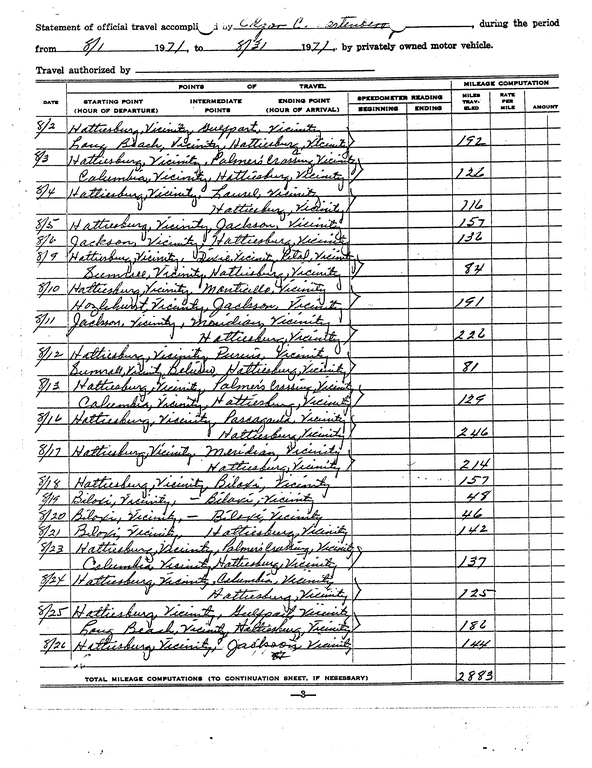 Statement of official travel accompli d by Edgar C. ortenberg, during the period
from 8/1 1971, to 8/31 1971, by privately owned motor vehicle.
Travel authorized by
POINTS OF TRAVEL MILEAGE COMPUTATION
DATE STARTING POINT (HOUR OF DEPARTURE) INTERMEDIATE POINTS ENDING POINT (HOUR OF ARRIVAL) SPEEDOMETER READING BEGINNING ENDING MILES TRAV-ELED RATE PER MILE AMOUNT
8/2 Hattiesburg, Vicinity, Gulfport, Vicinity
Long Beach, Vicinity, Hattiesburg, Vicinity 192
8/3 Hattiesburg, Vicinity, Palmer's Crossing, Vicinity
Columbia, Vicinity, Hattiesburg, Vicinity 126
8/4 Hattiesburg, Vicinity, Laurel, Vicinity
Hattiesburg, Vicinity 116
8/5 Hattiesburg, Vicinity, Jackson, Vicinity 157
8/6 Jackson, Vicinity, Hattiesburg, Vicinity 136
8/9 Hattiesburg, Vicinity, Vicinity, Petal, Vicinity
Sumrall, Vicinity, Hattiesburg, Vicinity 84
8/10 Hattiesburg, Vicinity, Monticello, Vicinity
Hazlehurst, Vicinity, Jackson, Vicinity 191
8/11 Jackson, Vicinity, Meridian, Vicinity
Hattiesburg, Vicinity 226
8/12 Hattiesburg, Vicinity, Purvis, Vicinity
Sumrall, Vicinity, Hattiesburg, Vicinity 81
8/13 Hattiesburg, Vicinity, Palmer's Crossing, Vicinity
Columbia, Vicinity, Hattiesburg, Vicinity 129
8/16 Hattiesburg, Vicinity, Pascagoula, Vicinity
Hattiesburg, Vicinity 246
8/17 Hattiesburg, Vicinity, Meridian, Vicinity
Hattiesburg, Vicinity 214
8/18 Hattiesburg, Vicinity, Biloxi, Vicinity 157
8/19 Biloxi, Vicinity, - Biloxi, Vicinity 48
8/20 Biloxi, Vicinity, - Biloxi, Vicinity 46
8/21 Biloxi, Vicinity, Hattiesburg, Vicinity 142
8/23 Hattiesburg, Vicinity, Palmer's Crossing, Vicinity
Columbia, Vicinity, Hattiesburg, Vicinity 137
8/24 Hattiesburg, Vicinity, Columbia, Vicinity
Hattiesburg, Vicinity 125
8/25 Hattiesburg, Vicinity, Gulfport, Vicinity
Long Beach, Vicinity, Hattiesburg, Vicinity 186
8/26 Hattiesburg, Vicinity, Jackson, Vicinity 144
TOTAL MILEAGE COMPUTATIONS (TO CONTINUATION SHEET, IF NESESSARY) 2883
—3—